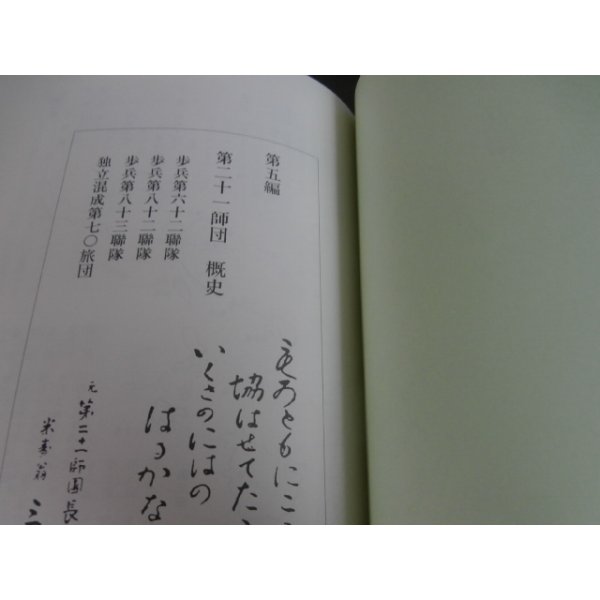 第五編
第二十一師団 概史
歩兵第六十二聯隊
歩兵第八十二聯隊
歩兵第八十三聯隊
独立混成第七〇旅団
もろともにこ
協はせてた
いくさのにはの
はるかな
元 第二十一師團長
米寿翁 三